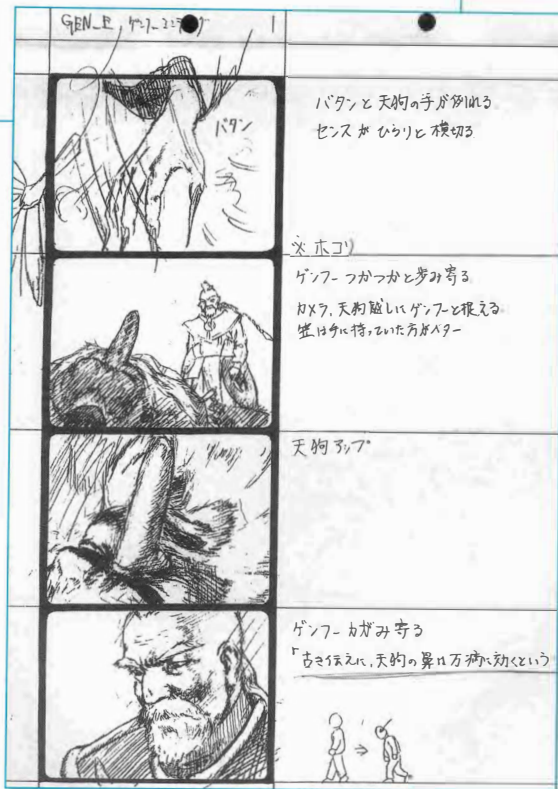 GEN_E ゲンフーエンディング 1
バタン
バタンと天狗の手が倒れる
センスがひらりと横切る
※ホコリ
ゲンフーつかつかと歩み寄る
カメラ、天狗越しにゲンフーを捉える
笠は手に持っていた方がベター
天狗アップ
ゲンフーかがみ寄る
「古き伝えに、天狗の鼻は万病に効くという